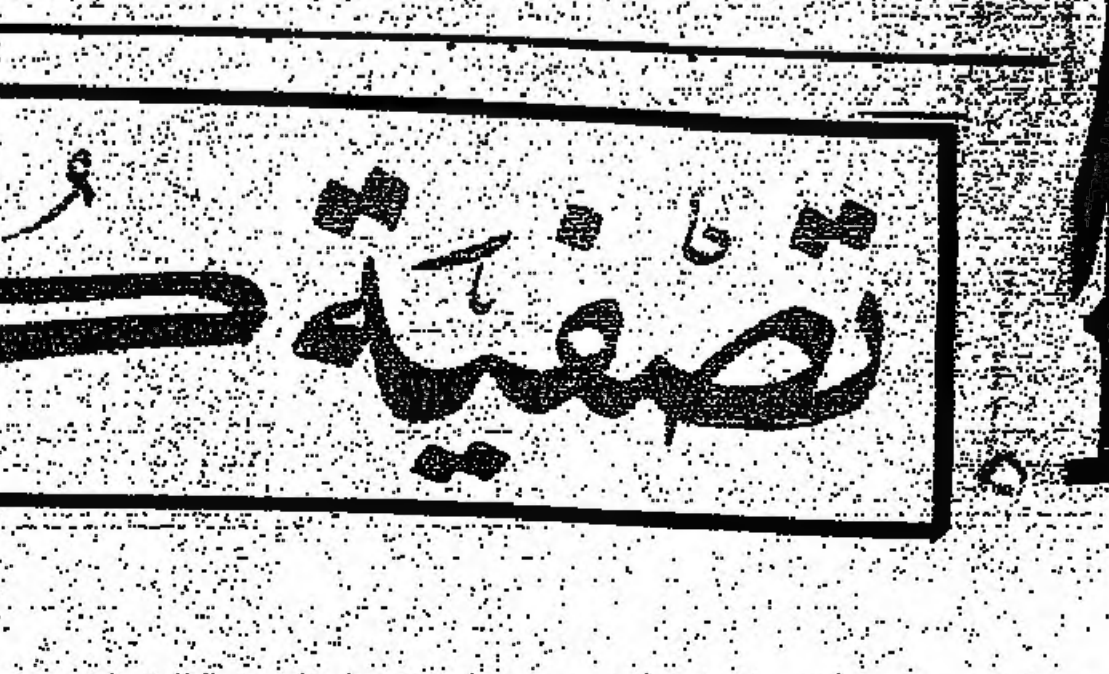 تصفية